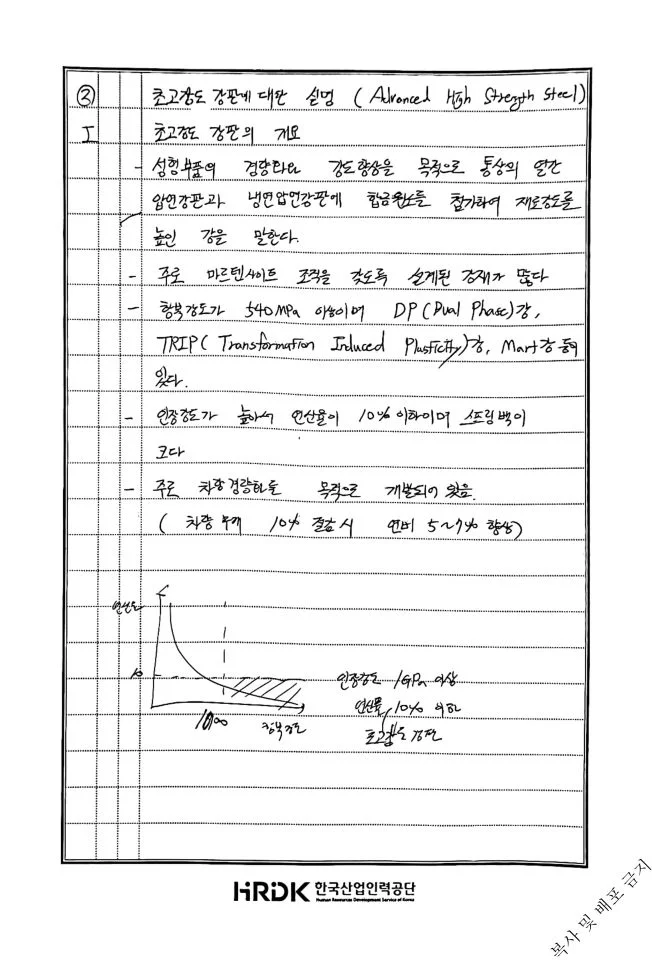 ③ 초고강도 강판에 대한 설명 (Advanced High Strength Steel)
I 초고강도 강판의 개요
- 성형부품의 경량화와 강도향상을 목적으로 통상의 열간
압연강판과 냉연압연강판에 합금원소를 첨가하여 재료강도를
높인 강을 말한다.
- 주로 마르텐사이트 조직을 갖도록 설계된 강재가 많다
- 항복강도가 540MPa 이상이며 DP(Dual Phase)강,
TRIP(Transformation Induced Plasticity)강, Mart강 등이
있다.
- 인장강도가 높아서 연산율이 10% 이하이며 스프링백이
크다
- 주로 차량경량화를 목적으로 개발되어 왔음.
(차량 무게 10% 절감 시 연비 5~7% 향상)
연산율
10
인장강도 1GPa 이상
연산율 10% 이하
초고강도 강판
1000 항복강도
HRDK 한국산업인력공단
Human Resources Development Service of Korea
복사 및 배포 금지